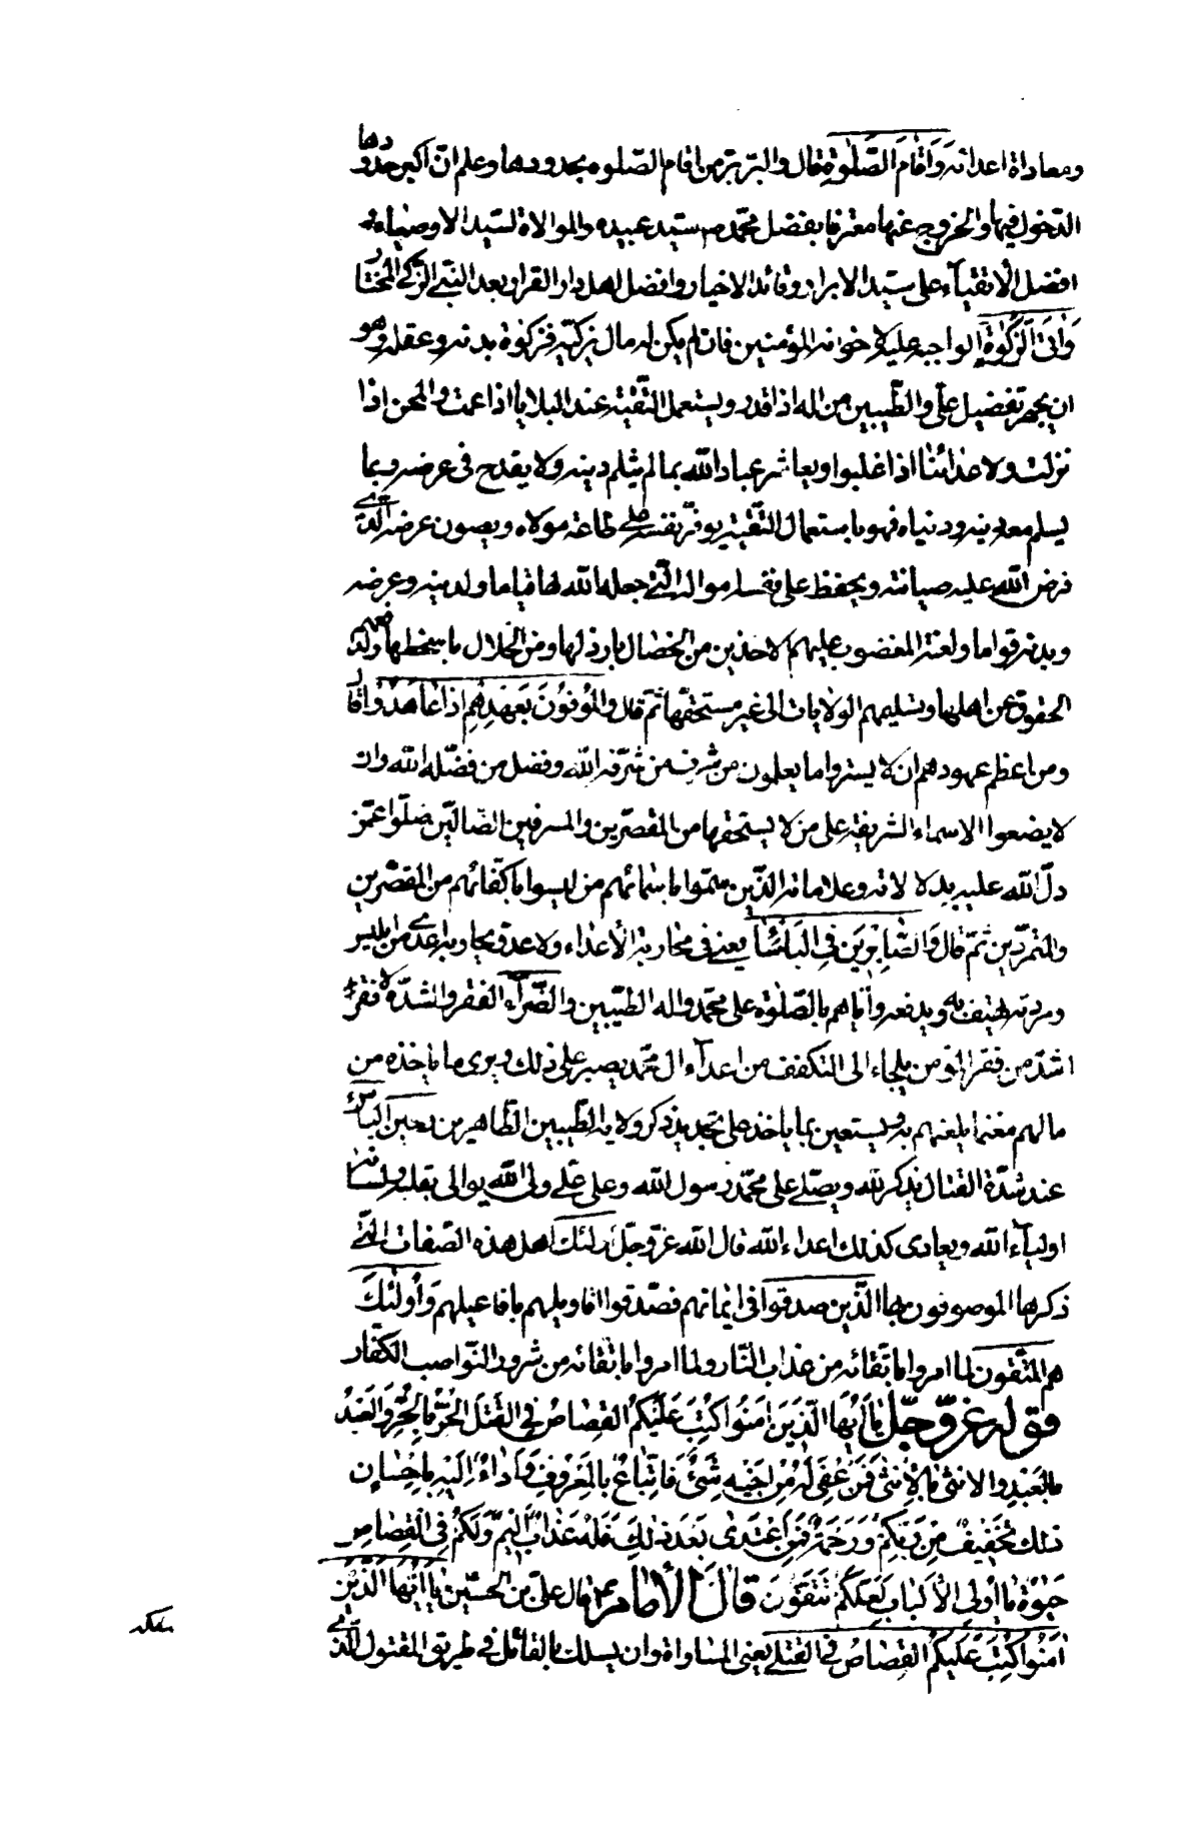 ومعاداة اعدائه وَاَقامَ الصَّلوٰةَ قال والبرّ برّ من اقام الصّلوة بحدودها وعلم انّ اكبر حدودها
الدّخول فيها والخروج عنها معترفا بفضل محمّد ص سيّد عبيده والموالاة لسيّد الاوصياء
افضل الأتقيآء علي سيّد الابرار وقائد الاخيار وافضل اهل دار القرار بعد النبيّ الزّكيّ المختار
وَاٰتَى الزَّكٰوةَ الواجبة عليه لاخوانه المؤمنين فان لم يكن له مال يزكّيه فزكوة بدنه وعقله وهو
ان يجهر بتفضيل عليّ والطّيبين من اله اذا قدر ويستعمل التّقيّة عند البلايا اذا عمت والمحن اذا
نزلت ولاعدائنا اذا غلبوا ويعاشر عباد الله بما لم يثلم دينه ولا يقدح في عرضه وبما
يسلم معه دينه ودنياه فهو باستعمال التّقيّة يوفّر نفسه على طاعة مولاه ويصون عرضه الّذي
فرض الله عليه صيانته ويحفظ على نفسه امواله الّتي جعله الله لها قياما ولدينه وعرضه
وبدنه قواما ولعن المغضوب عليهم الاخذين من الخصال بارذلها ومن الخلال باسخطها ودفعهم
الحقوق عن اهلها وتسليمهم الولايات الى غير مستحقّها ثمّ قال وَالمُوفُونَ بِعَهدِهِم اِذا عاهَدُوا قال
ومن اعظم عهودهم ان لا يستروا ما يعلمون من شرف من شرّفه الله وفضل من فضّله الله وان
لا يضعوا الاسماء الشريفة على من لا يستحقها من المقصّرين والمسرفين الضّالّين ضلّوا عمّن
دلّ الله عليه بدلالاته وعلاماته الّذين سمّوا باسمائهم من ليسوا باكفّائهم من المقصّرين
والمتمرّدين ثمّ قال وَالصّابِرينَ فِي البَاْسٰاءِ يعني في محاربة الأعداء ولا عدوّ يحاربه اعدى من ابليس
ومردته يهتف به ويدفعه وايّاهم بالصّلوة على محمّد واله الطيّبين والضّرّآء الفقر والشدّة ولا فقر
اشدّ من فقر المؤمن يلجاء الى التكفف من اعدآء ال محمّد يصبر على ذلك ويرى ما ياخذه من
مالهم مغنما يلعنهم به ويستعين بما ياخذ على تجديد ذكر ولاية الطّيبين الطّاهرين وحين البأس
عند شدّة القتال يذكر الله ويصلّي على محمّد رسول الله وعلى عليّ وليّ الله يوالى بقلبه ولسانه
اوليآء الله ويعادى كذلك اعداء الله قال الله عزّ وجلّ اولئك اهل هذه الصّفات الّتي
ذكرها الموصوفون بها الّذين صدقوا في ايمانهم فصدّقوا اقاويلهم بافاعيلهم وَاُولٰئِكَ
هم المتّقون لما امروا باتّقائه من عذاب النّار ولما امروا باتّقائه من شرور النّواصب الكفّار
قوله عزّ وجلّ يا اَيُّهَا الَّذينَ اٰمَنُوا كُتِبَ عَلَيكُمُ القِصاصُ فِي القَتلَى الحُرُّ بِالحُرِّ وَالعَبدُ
بِالعَبدِ والانثى بِالاُنثى فَمَن عُفِيَ لَهُ مِن اَخيهِ شَيءٌ فَاتِّباعٌ بِالمَعروفِ وَاَداءٌ اِلَيهِ بِاِحسانٍ
ذلك تَخفيفٌ مِن رَبِّكُم وَرَحمَةٌ فَمَنِ اعتَدى بَعدَ ذلِكَ فَلَهُ عَذابٌ اَليمٌ وَلَكُم فِي القِصاصِ
حَيٰوةٌ يا اُولِي الاَلبابِ لَعَلَّكُم تَتَّقونَ قالَ الأمام قال عليّ بن الحسين يا اَيُّهَا الَّذينَ
اٰمَنُوا كُتِبَ عَلَيكُمُ القِصاصُ فِي القَتلى يعني المساواة وان يسلك بالقاتل في طريق المقتول الّذي